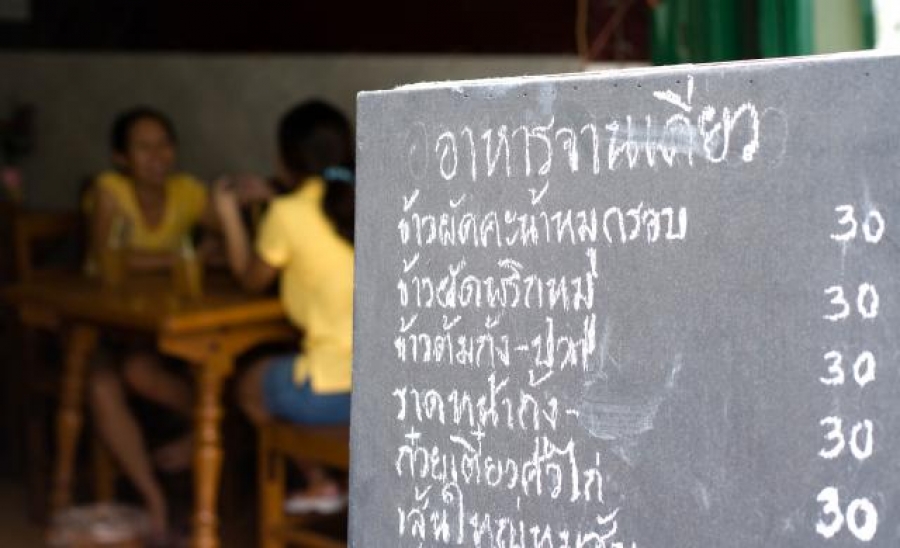 อาหารจานเดียว
ข้าวผัดคะน้าหมูกรอบ 30
ข้าวผัดพริกหมู 30
ข้าวต้มกุ้ง-ปลา 30
ราดหน้ากุ้ง- 30
ก๋วยเตี๋ยวคั่วไก่ 30
เส้นใหญ่